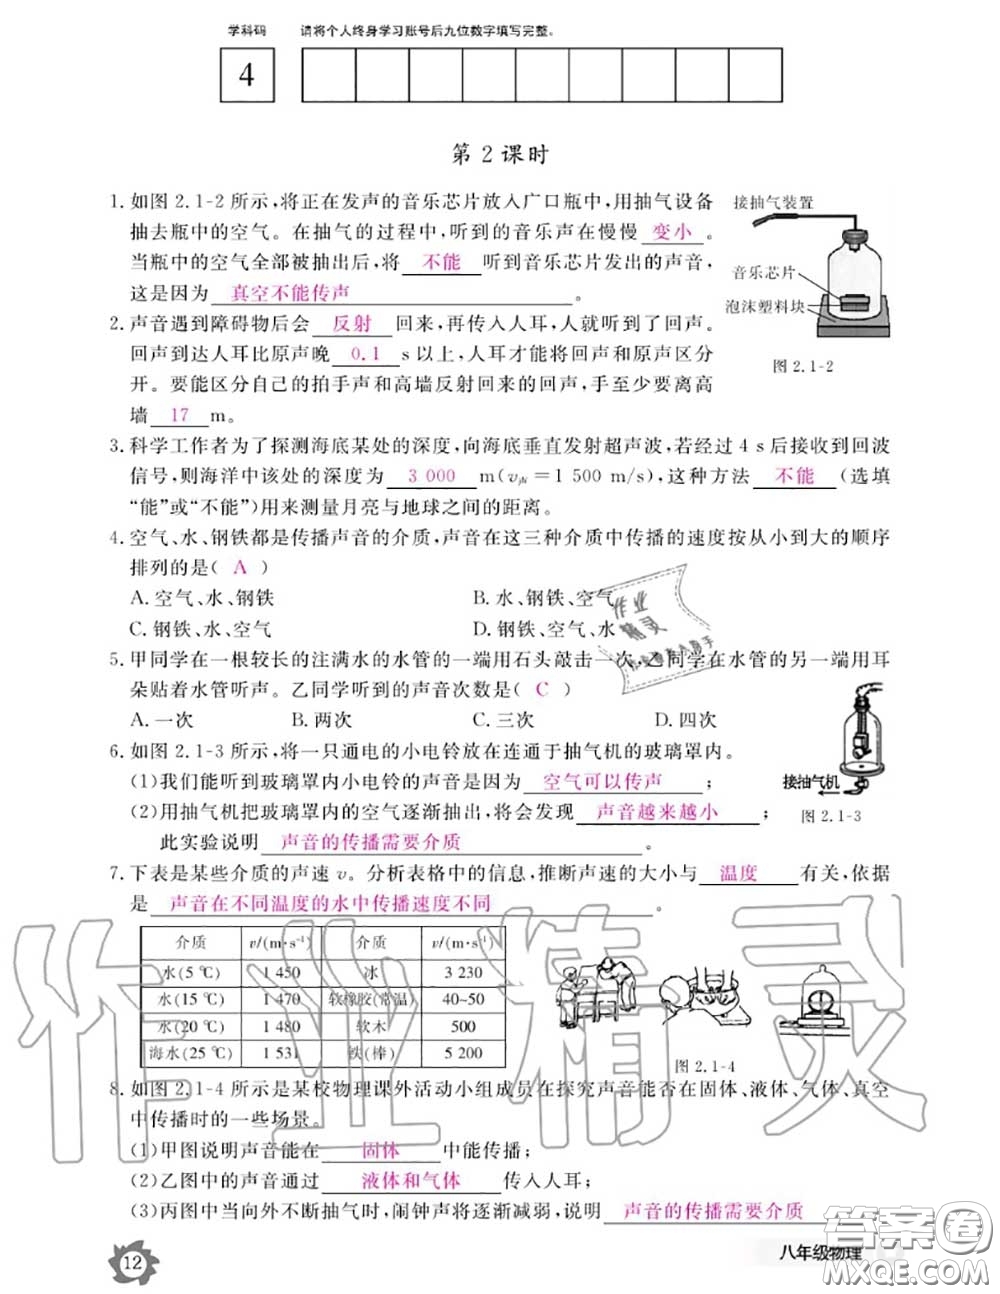 学科码 请将个人终身学习账号后九位数字填写完整。
4
第 2 课时
1. 如图 2.1-2 所示,将正在发声的音乐芯片放入广口瓶中,用抽气设备
抽去瓶中的空气。在抽气的过程中,听到的音乐声在慢慢 变小 。
当瓶中的空气全部被抽出后,将 不能 听到音乐芯片发出的声音,
这是因为 真空不能传声 。
接抽气装置
音乐芯片
泡沫塑料块
图 2.1-2
2. 声音遇到障碍物后会 反射 回来,再传入人耳,人就听到了回声。
回声到达人耳比原声晚 0.1 s 以上,人耳才能将回声和原声区分
开。要能区分自己的拍手声和高墙反射回来的回声,手至少要离高
墙 17 m。
3. 科学工作者为了探测海底某处的深度,向海底垂直发射超声波,若经过 4 s 后接收到回波
信号,则海洋中该处的深度为 3 000 m(v声=1 500 m/s),这种方法 不能 (选填
“能”或“不能”)用来测量月亮与地球之间的距离。
4. 空气、水、钢铁都是传播声音的介质,声音在这三种介质中传播的速度按从小到大的顺序
排列的是( A )
A. 空气、水、钢铁 B. 水、钢铁、空气
C. 钢铁、水、空气 D. 钢铁、空气、水
5. 甲同学在一根较长的注满水的水管的一端用石头敲击一次,乙同学在水管的另一端用耳
朵贴着水管听声。乙同学听到的声音次数是( C )
A. 一次 B. 两次 C. 三次 D. 四次
6. 如图 2.1-3 所示,将一只通电的小电铃放在连通于抽气机的玻璃罩内。
(1)我们能听到玻璃罩内小电铃的声音是因为 空气可以传声 ;
(2)用抽气机把玻璃罩内的空气逐渐抽出,将会发现 声音越来越小 ;
此实验说明 声音的传播需要介质 。
接抽气机
图 2.1-3
7. 下表是某些介质的声速 v。分析表格中的信息,推断声速的大小与 温度 有关,依据
是 声音在不同温度的水中传播速度不同 。
介质 v/(m·s⁻¹) 介质 v/(m·s⁻¹)
水(5 ℃) 1 450 冰 3 230
水(15 ℃) 1 470 软橡胶(常温) 40~50
水(20 ℃) 1 480 软木 500
海水(25 ℃) 1 531 铁(棒) 5 200
图 2.1-4
8. 如图 2.1-4 所示是某校物理课外活动小组成员在探究声音能否在固体、液体、气体、真空
中传播时的一些场景。
(1)甲图说明声音能在 固体 中能传播;
(2)乙图中的声音通过 液体和气体 传入人耳;
(3)丙图中当向外不断抽气时,闹钟声将逐渐减弱,说明 声音的传播需要介质
12
八年级物理
作业精灵
答案圈
MXQE.COM
作业
精灵